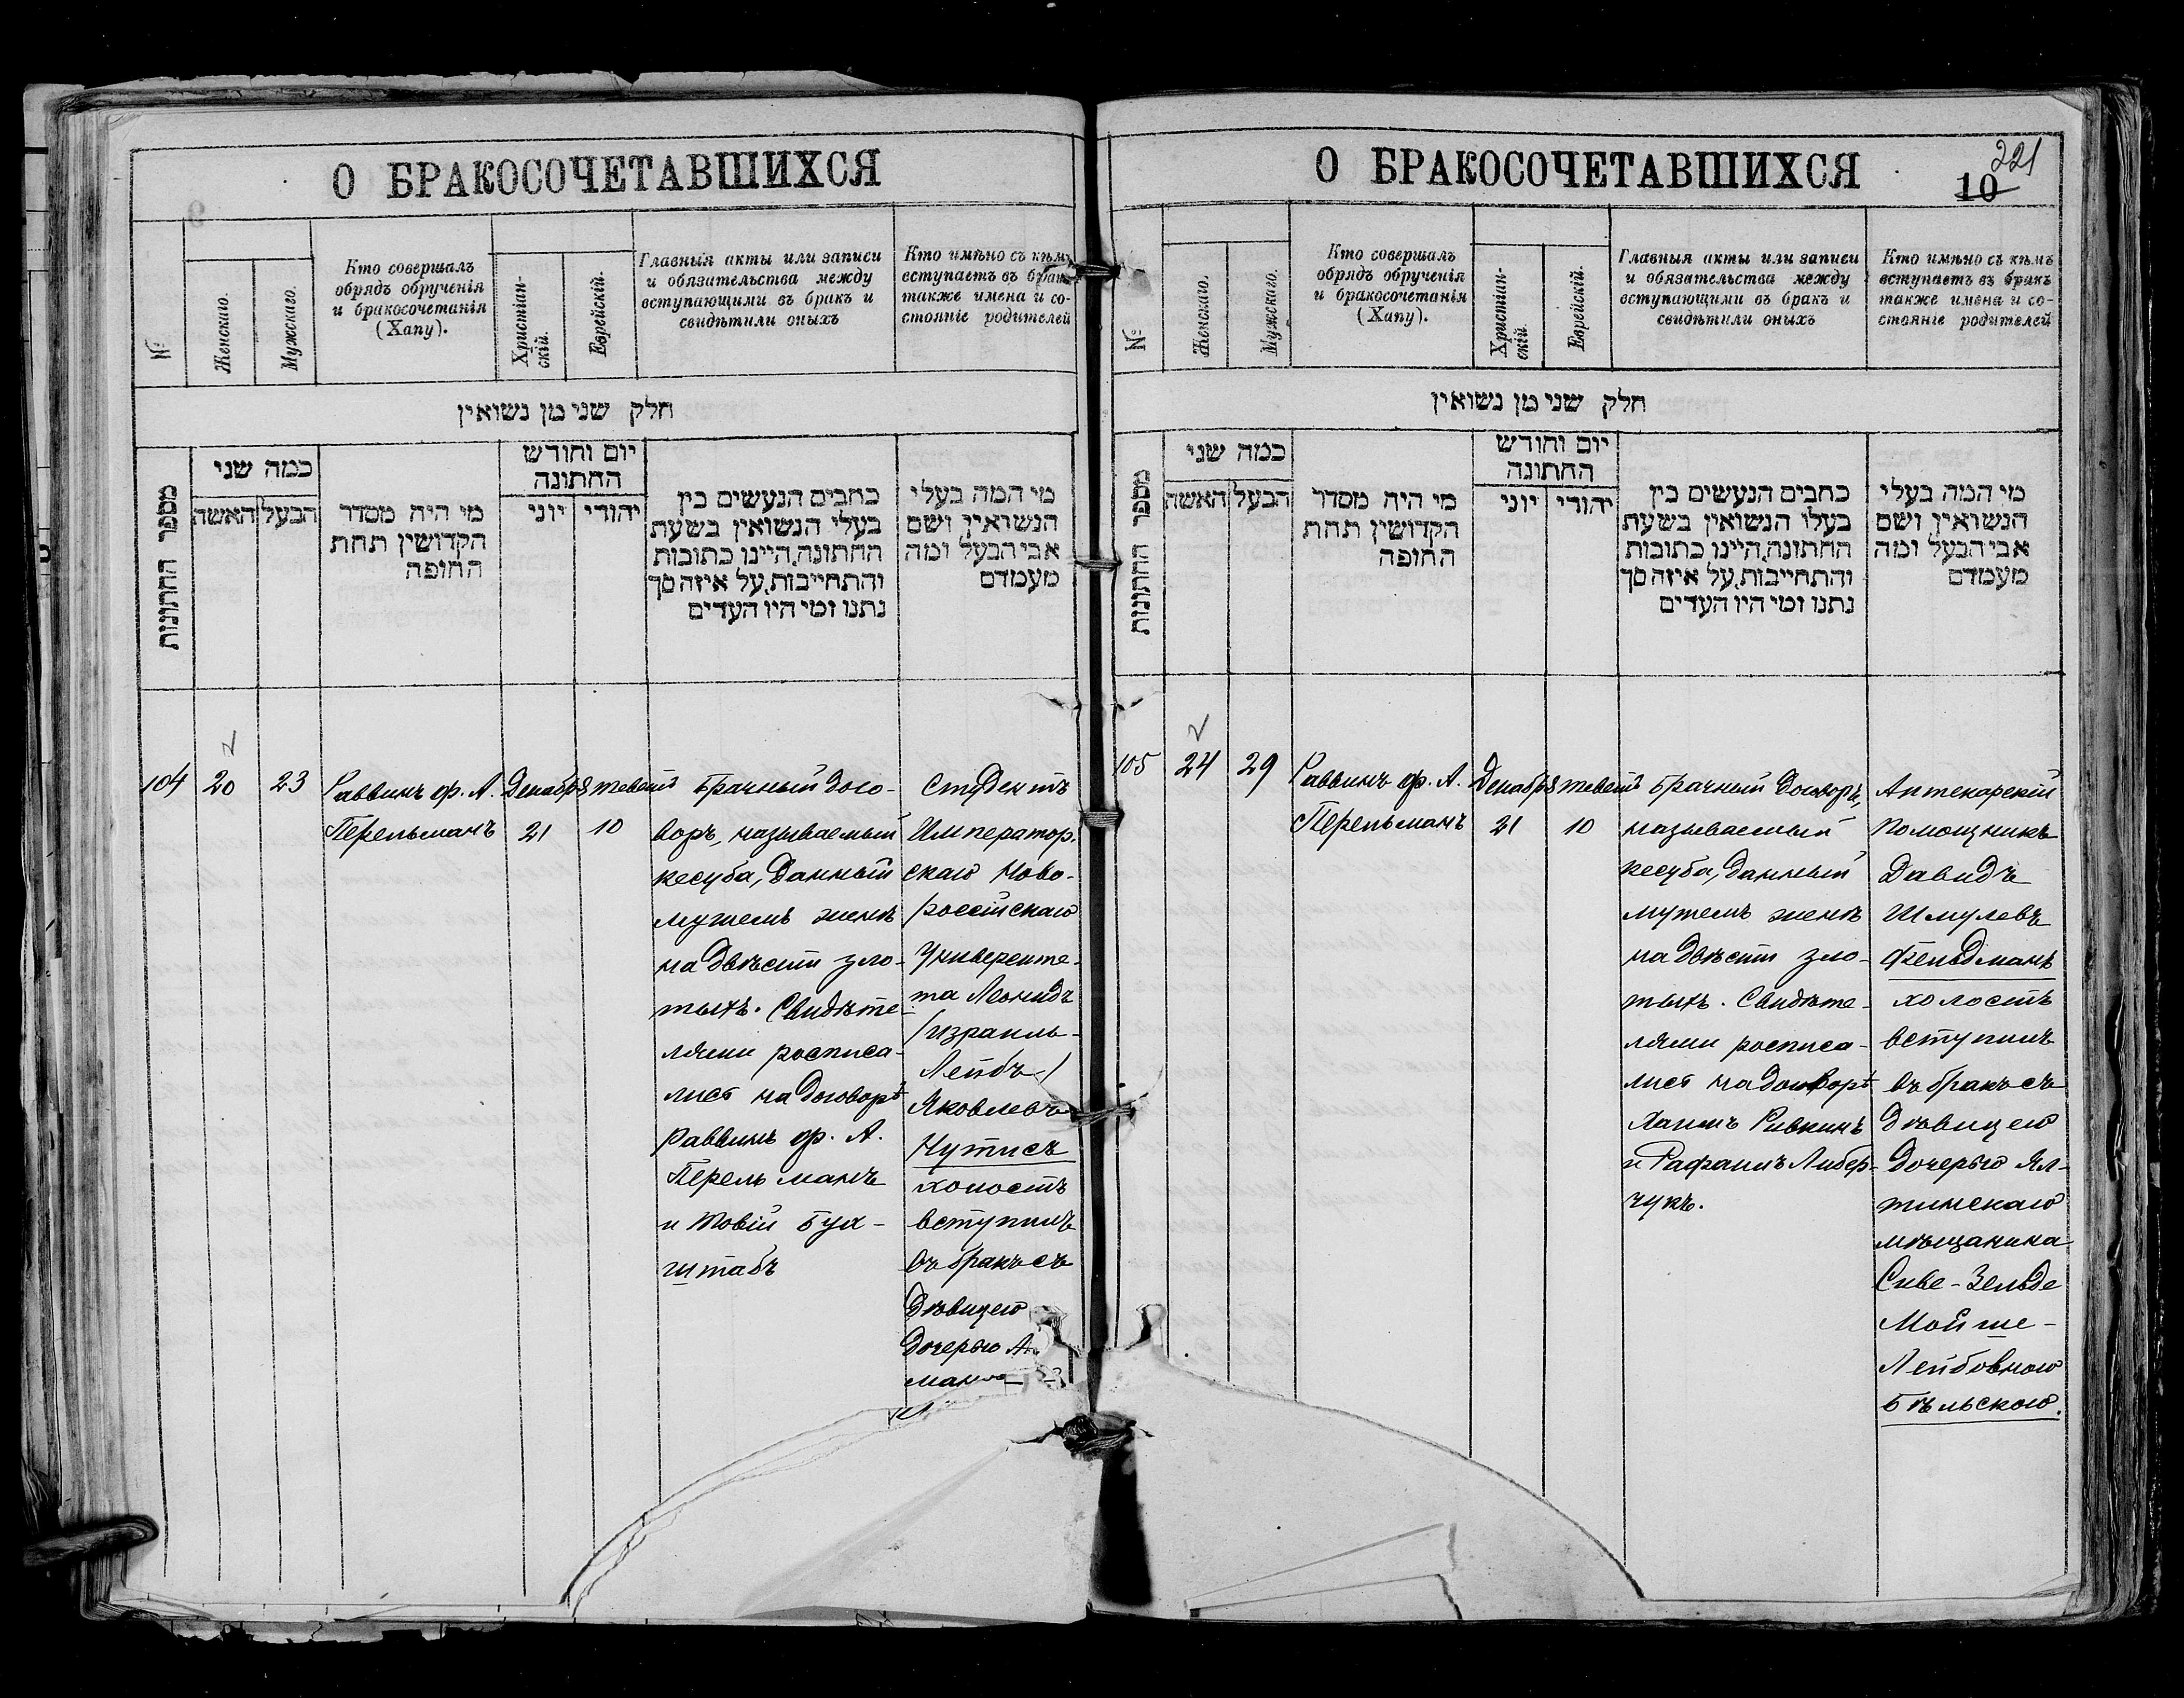 О БРАКОСОЧЕТАВШИХСЯ
№
Женскаго.
Мужскаго.
Кто совершалъ
обрядъ обрученія
и бракосочетанія
(Хапу).
Христіан-
скій.
Еврейскій.
Главныя акты или записи
и обязательства между
вступающими въ бракъ и
свидѣтили оныхъ
Кто имѣно съ кѣмъ
вступаетъ въ бракъ
также имена и со-
стояніе родителей
חלק שני מן נשואין
מספר החתונות
כמה שני
הבעל
האשה
מי היה מסדר
הקדושין תחת
החופה
יום וחודש
החתונה
יהודי
יוני
כתבים הנעשים בין
בעלי הנשואין בשעת
החתונה, היינו כתובות
והתחייבות, על איזה סך
נתנו ומי היו העדים
מי המה בעלי
הנשואין ושם
אבי הבעל ומה
מעמדם
104
20
23
Раввинъ ф. А.
Перельманъ
Декабря
21
тевейс
10
Брачный дого-
воръ, называемый
кесуба, данный
мужемъ женѣ
на двѣсти зло-
тыхъ. Свидѣте-
лями росписа-
лись на договорѣ
Раввинъ ф. А.
Перельманъ
и Товій Бух-
штабъ
Студентъ
Император-
скаго Ново-
россійскаго
Университе-
та Леонидъ
/Израиль-
Лейбъ/
Яковлевъ
Кутисъ
холостъ
вступилъ
въ бракъ съ
дѣвицею
дочерью
О БРАКОСОЧЕТАВШИХСЯ
221
10
№
Женскаго.
Мужскаго.
Кто совершалъ
обрядъ обрученія
и бракосочетанія
(Хапу).
Христіан-
скій.
Еврейскій.
Главныя акты или записи
и обязательства между
вступающими въ бракъ и
свидѣтили оныхъ
Кто имѣно съ кѣмъ
вступаетъ въ бракъ
также имена и со-
стояніе родителей
חלק שני מן נשואין
מספר החתונות
כמה שני
הבעל
האשה
מי היה מסדר
הקדושין תחת
החופה
יום וחודש
החתונה
יהודי
יוני
כתבים הנעשים בין
בעלי הנשואין בשעת
החתונה, היינו כתובות
והתחייבות, על איזה סך
נתנו ומי היו העדים
מי המה בעלי
הנשואין ושם
אבי הבעל ומה
מעמדם
105
24
29
Раввинъ ф. А.
Перельманъ
Декабря
21
тевейс
10
Брачный договоръ,
называемый
кесуба, данный
мужемъ женѣ
на двѣсти зло-
тыхъ. Свидѣте-
лями росписа-
лись на договорѣ
Хаимъ Ривкинъ
и Рафаилъ Либер-
чукъ.
Аптекарскій
помощникъ
Давидъ
Шмулевъ
Фельдманъ
холостъ
вступилъ
въ бракъ съ
дѣвицею
дочерью Ял-
тинскаго
мѣщанина
Сиве-Зельде
Мойше-
Лейбовною
Бѣльскою.